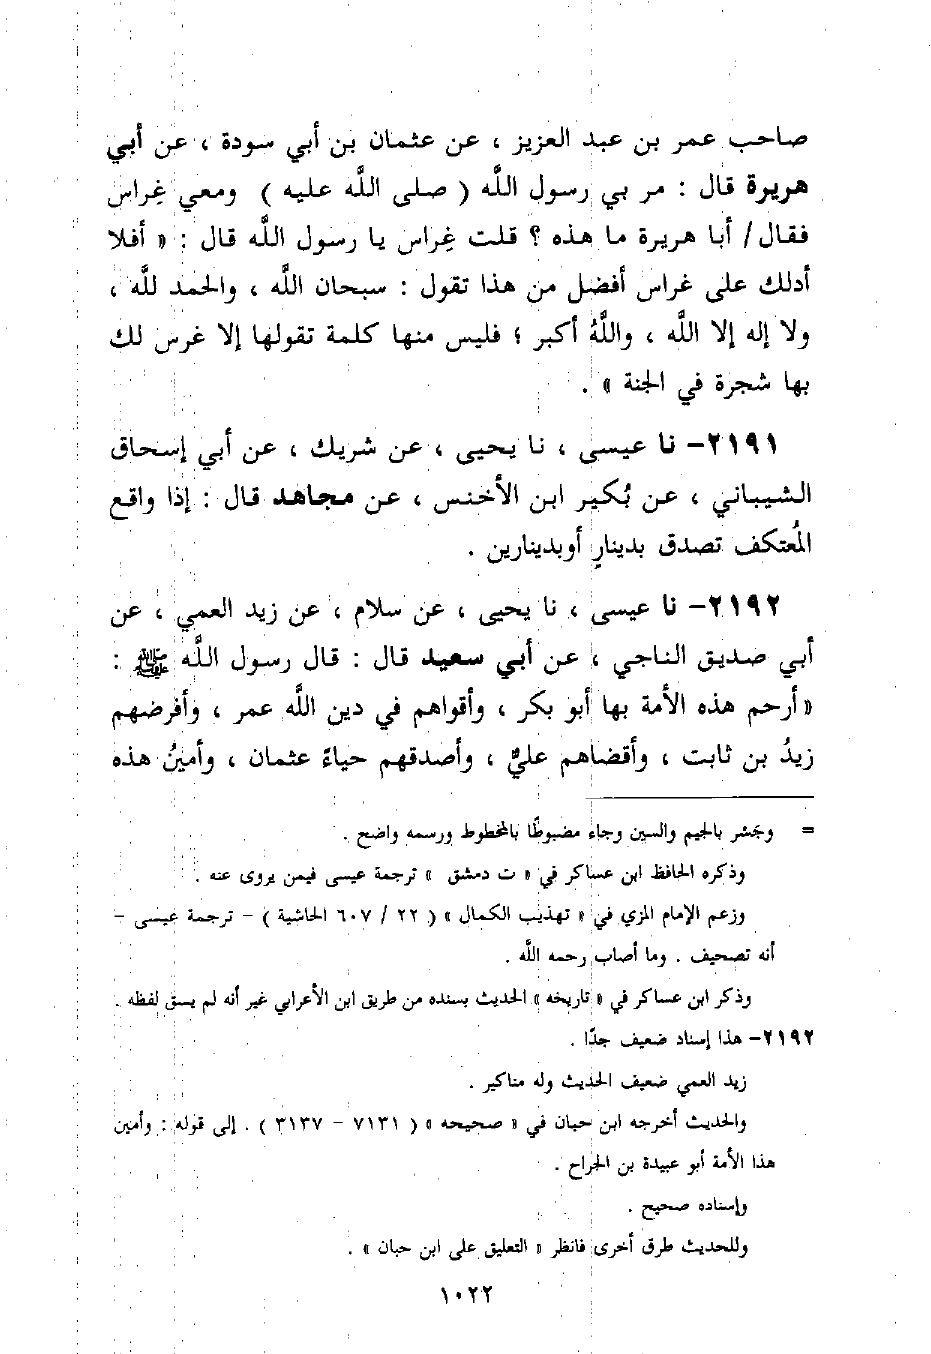 صاحب عمر بن عبد العزيز ، عن عثمان بن أبي سودة ، عن أبي
هريرة قال : مر بي رسول اللَّه ( صلى اللَّه عليه ) ومعي غِراس
فقال / أبا هريرة ما هذه ؟ قلت غِراس يا رسول اللَّه قال : « أفلا
أدلك على غراس أفضل من هذا تقول : سبحان اللَّه ، والحمد للَّه ،
ولا إله إلا اللَّه ، واللَّهُ أكبر ؛ فليس منها كلمة تقولها إلا غرس لك
بها شجرة في الجنة » .
٢١٩١- نا عيسى ، نا يحيى ، عن شريك ، عن أبي إسحاق
الشيباني ، عن بُكير ابن الأخنس ، عن مجاهد قال : إذا واقع
المُعتكف تصدق بدينارٍ أوبدينارين .
٢١٩٢- نا عيسى ، نا يحيى ، عن سلام ، عن زيد العمي ، عن
أبي صديق الناجي ، عن أبي سعيد قال : قال رسول اللَّه ﷺ :
« أرحم هذه الأمة بها أبو بكر ، وأقواهم في دين اللَّه عمر ، وأفرضهم
زيدُ بن ثابت ، وأقضاهم عليٌّ ، وأصدقهم حياءً عثمان ، وأمينُ هذه
= وجَشر بالجيم والسين وجاء مضبوطًا بالمخطوط ورسمه واضح .
وذكره الحافظ ابن عساكر في « ت دمشق » ترجمة عيسى فيمن يروى عنه .
وزعم الإمام المزي في « تهذيب الكمال » ( ٢٢ / ٦٠٧ الحاشية ) - ترجمة عيسى -
أنه تصحيف . وما أصاب رحمه اللَّه .
وذكر ابن عساكر في « تاريخه » الحديث بسنده من طريق ابن الأعرابي غير أنه لم يسق لفظه .
٢١٩٢- هذا إسناد ضعيف جدًا .
زيد العمي ضعيف الحديث وله مناكير .
والحديث أخرجه ابن حبان في « صحيحه » ( ٧١٣١ - ٣١٣٧ ) . إلى قوله : وأمين
هذا الأمة أبو عبيدة بن الجراح .
وإسناده صحيح .
وللحديث طرق أخرى فانظر « التعليق على ابن حبان » .
١٠٢٢